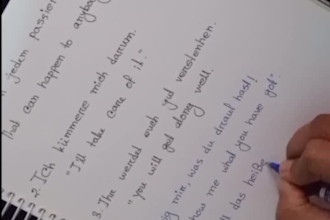 jedem passier
That can happen to anybo
2. Ich kümmere mich darum.
"I'll take care of it."
3. Ihr werdet euch gut verstehen.
"you will get along well.
mir, was du drauf hast!
how me what you have got.
das heiße